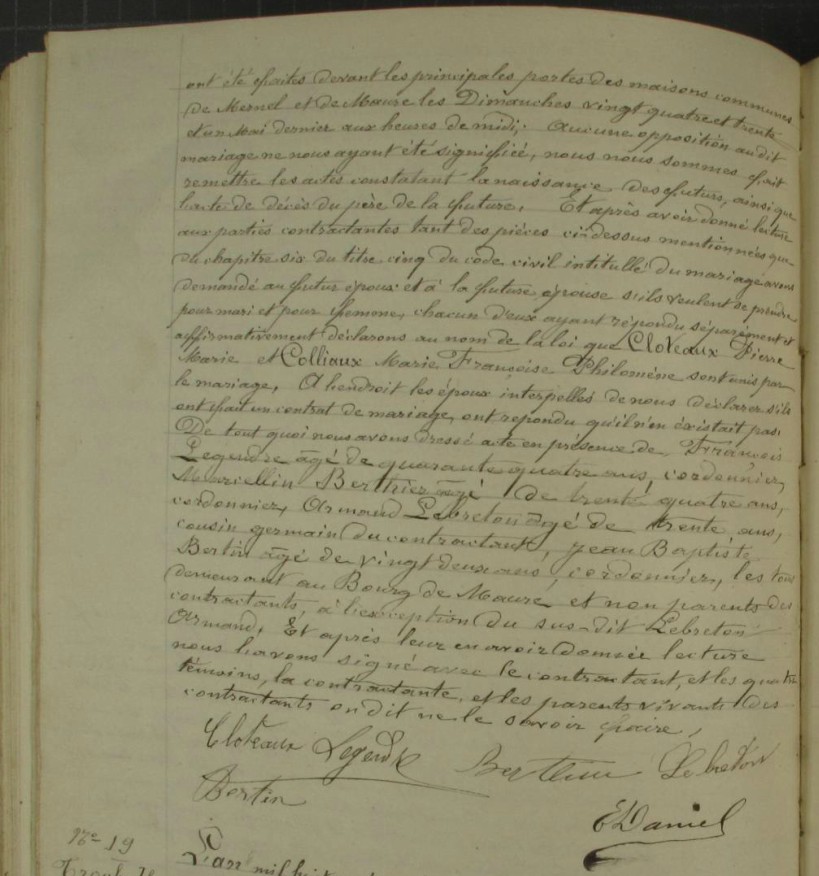 ont été faites devant les principales portes des maisons communes
de Mernel et de Maure les Dimanches vingt quatre et trente
et un Mai dernier aux heures de midi; Aucune opposition au dit
mariage ne nous ayant été signifiée, nous nous sommes fait
remettre les actes constatant la naissance des futurs, ainsi que
l'acte de décès du père de la future. Et après avoir donné lecture
aux parties contractantes tant des pièces ci-dessus mentionnées que
du chapitre six du titre cinq du code civil intitullé du mariage avons
demandé au futur époux et à la future épouse s'ils veulent se prendre
pour mari et pour femme, chacun d'eux ayant répondu séparément et
affirmativement déclarons au nom de la loi que Cloteaux Pierre
Marie et Colliaux Marie Françoise Philomène sont unis par
le mariage. A l'endroit les époux interpellés de nous déclarer s'ils
ont fait un contrat de mariage, ont repondu qu'il n'en éxistait pas.
De tout quoi nous avons dressé acte en présence de François
Legendre âgé de quarante quatre ans, cordonnier,
Marcellin Berthier âgé de trente quatre ans,
cordonnier, Armand Lebreton âgé de trente ans,
cousin germain du contractant, Jean Baptiste
Bertin âgé de vingt deux ans, cordonnier, les tous
demeurant au Bourg de Maure et non parents des
contractants, à l'exception du sus-dit Lebreton
Armand. Et après leur en avoir donnée lecture
nous l'avons signé avec le contractant, et les quatre
témoins, la contractante et les parents vivants des
contractants on dit ne le savoir faire.
Cloteaux Legendre Berthier Lebreton
Bertin
EDaniel
No 19
L'an mil huit